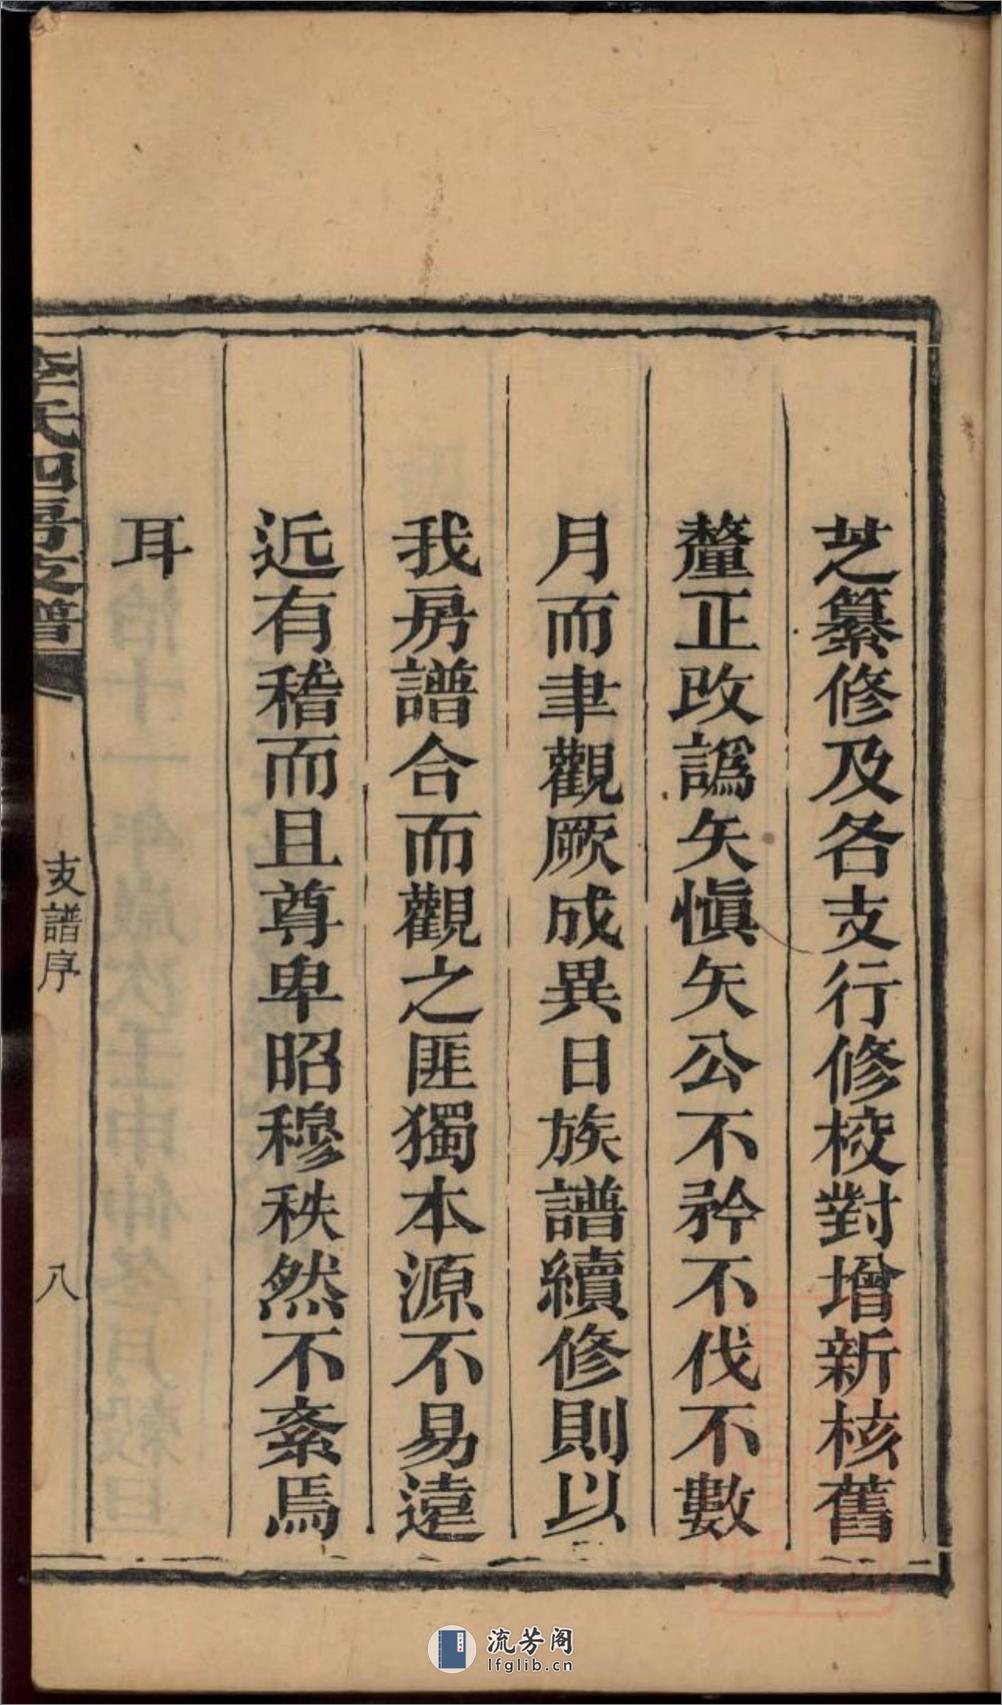 芝纂修及各支行修校對增新核舊
釐正改譌矢愼矢公不矜不伐不數
月而聿觀厥成異日族譜續修則以
我房譜合而觀之匪獨本源不易遠
近有稽而且尊卑昭穆秩然不紊焉
耳
李氏四房支譜
支譜序
八
流芳阁
lfglib.cn